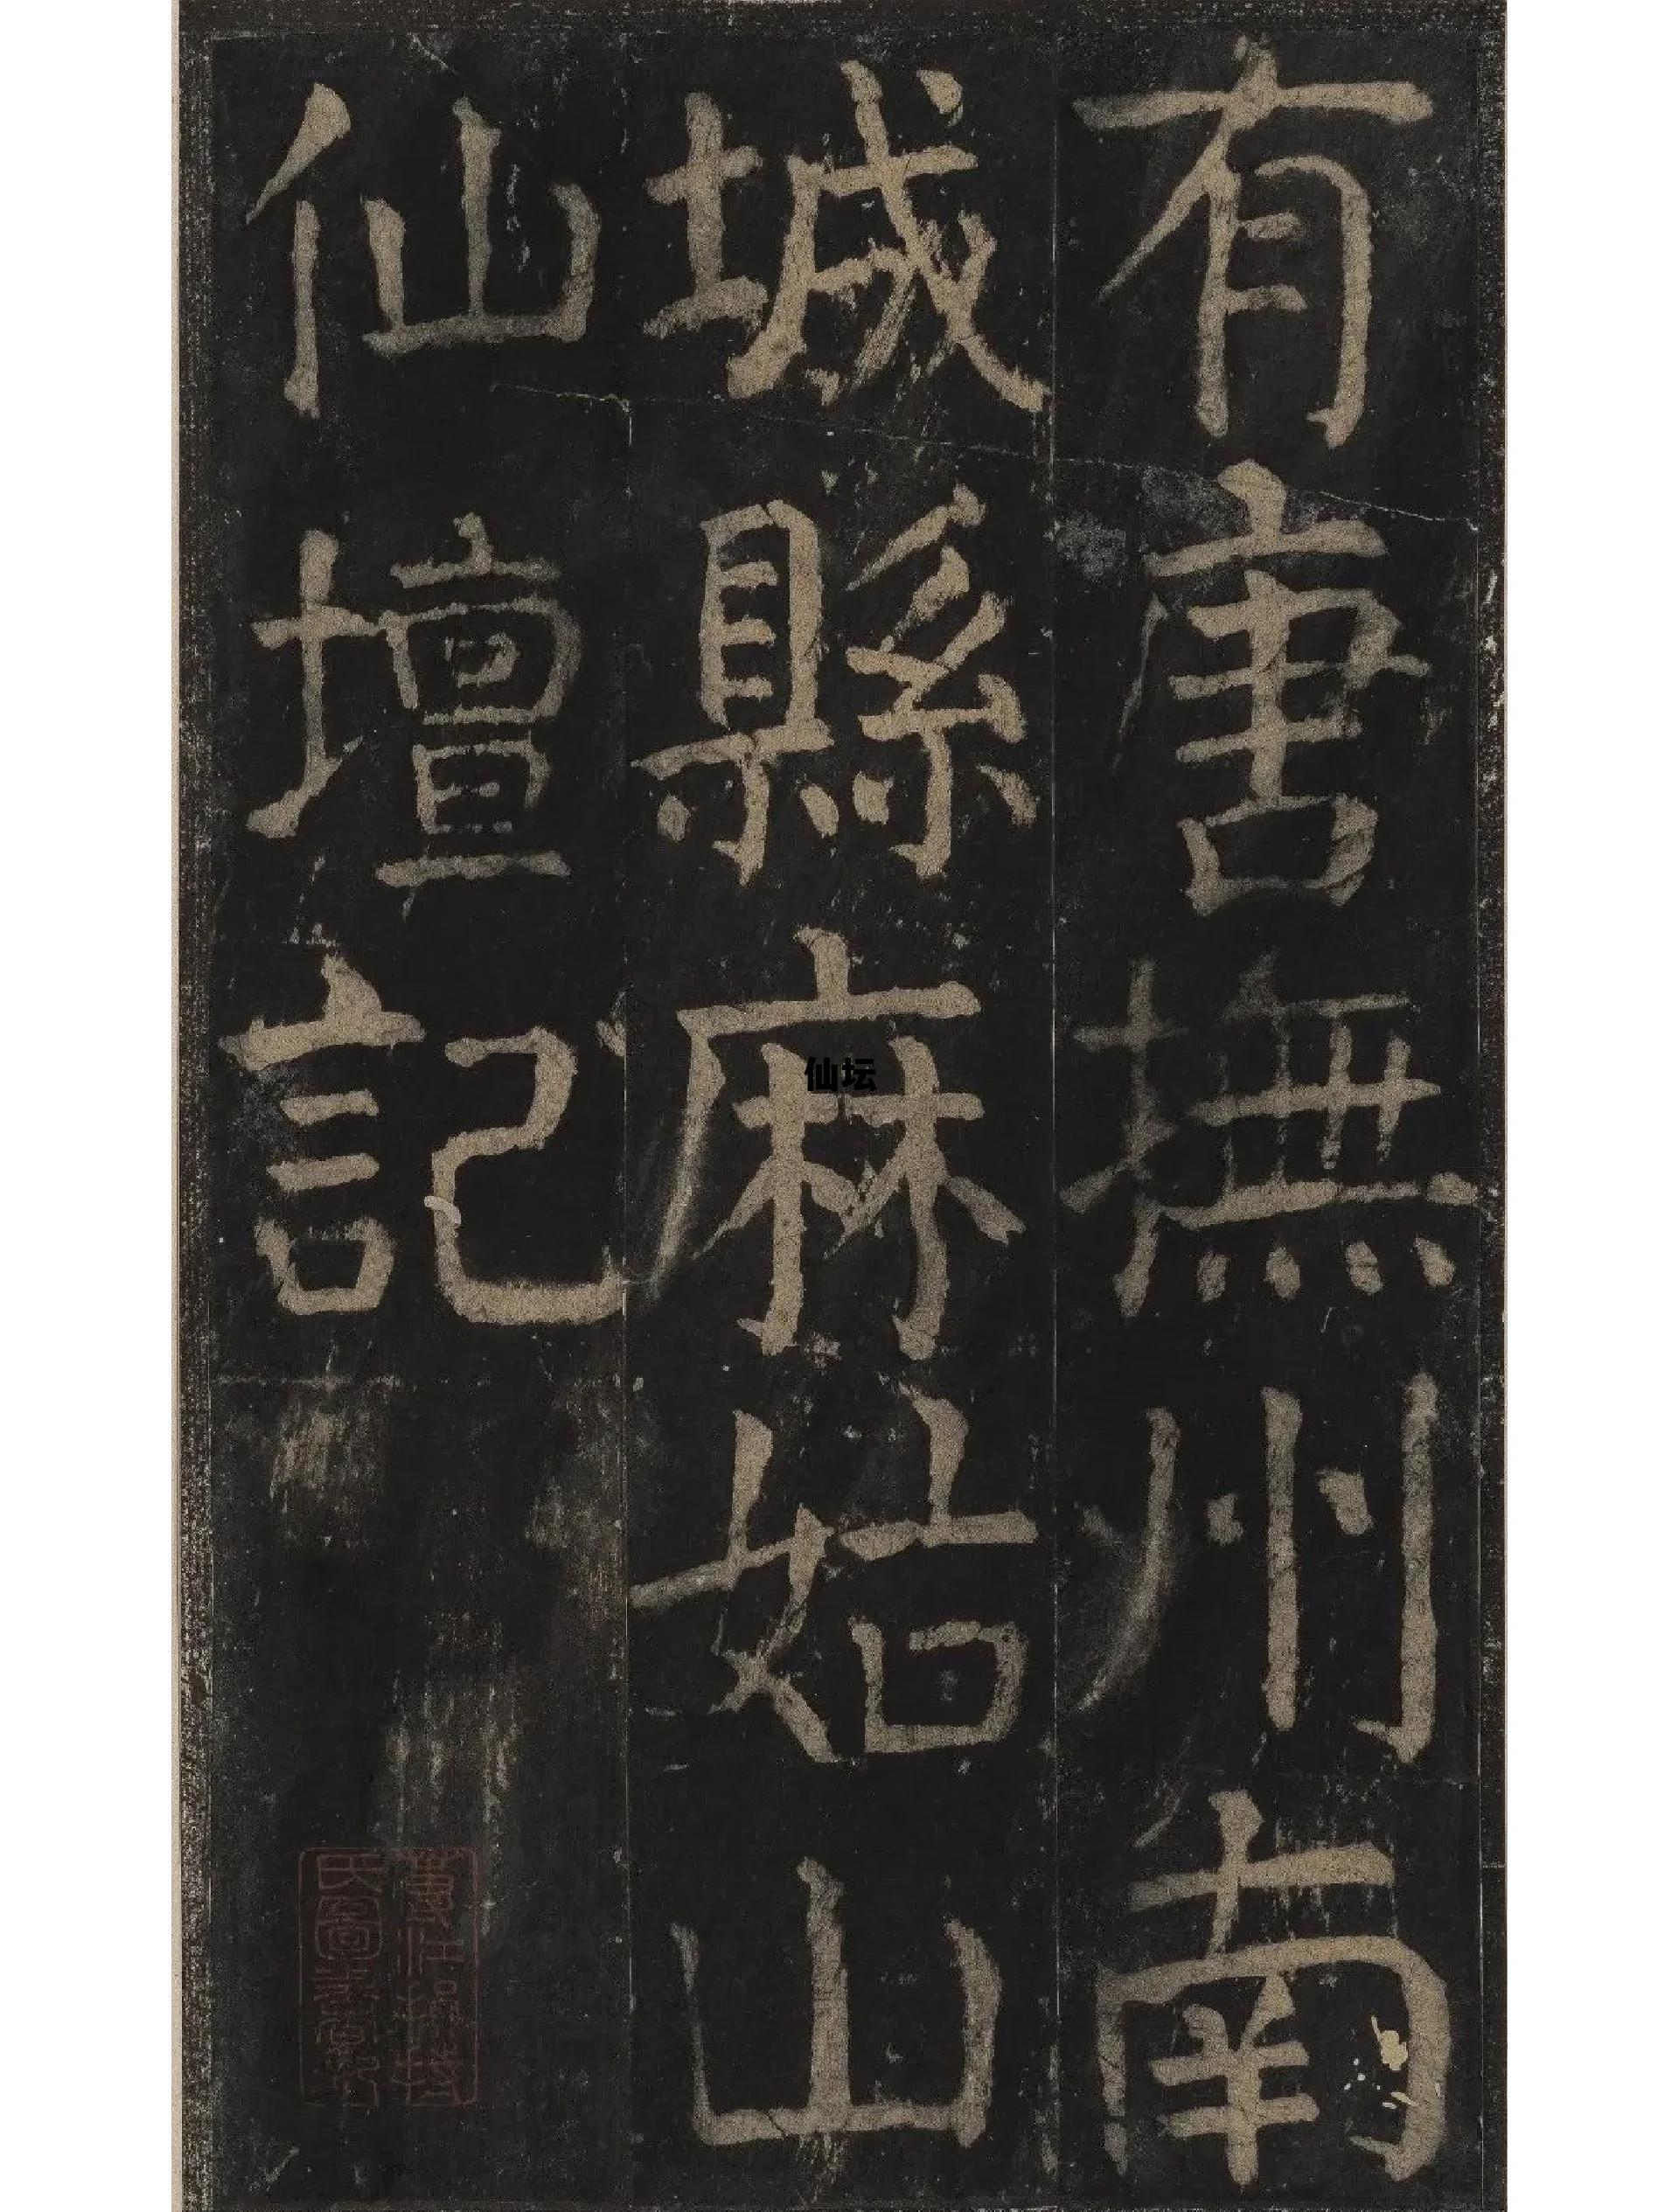 有唐撫州南
城縣麻姑山
仙壇記
仙坛